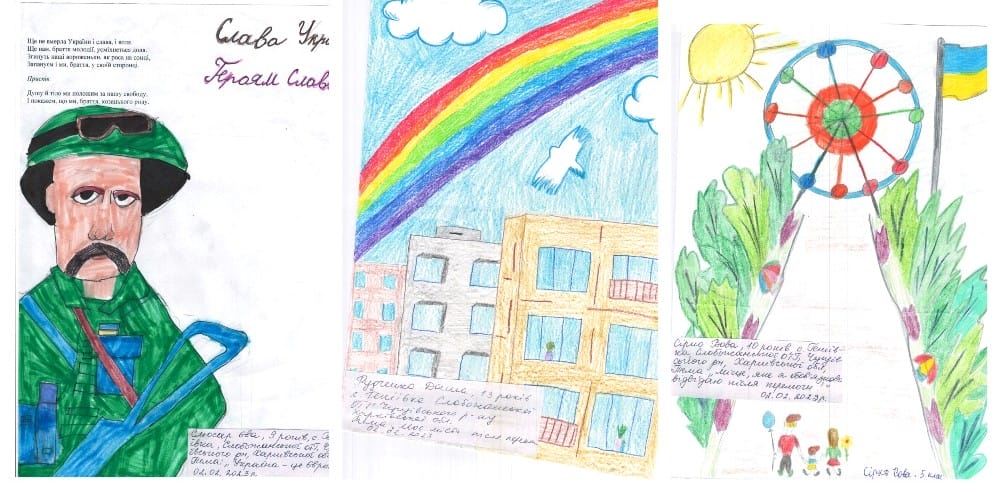 Ще не вмерла України і слава, і воля.
Ще нам, браття молодії, усміхнеться доля.
Згинуть наші вороженьки, як роса на сонці,
Запануєм і ми, браття, у своїй сторонці.
Приспів
Душу й тіло ми положим за нашу свободу,
І покажем, що ми, браття, козацького роду.
Слава Укра
Героям Слава
Слюсар Єва, 9 років, с. Ге
ївка, Слобожанської ОТГ, Чу
ївського рн, Харківської об
Тема: "Україна - це Євро
02.02.2023р
Руденко Даша, 13 років
с. Геніївка Слобожанської
ОТГ Чугуївського р-ну
Харківської обл
Тема "Моє місто після перем
02.02.2023
Сірко Вова, 10 років с. Геніїв-
ка Слобожанської ОТГ, Чугуїв-
ського рн, Харківської обл,
Тема "Місце, яке я обов'язково
відвідаю після перемоги"
02.02.2023р.
Сірко Вова. 5 клас